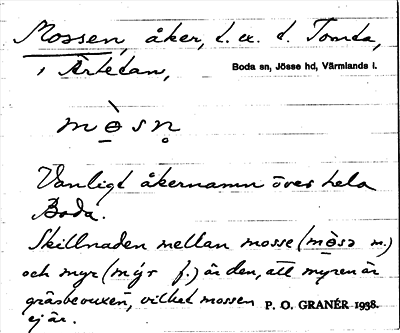 Mossen, åker, t. ex. t. Tomta,
i Ärtetan,
Boda sn, Jösse hd, Värmlands l.
mɵ̀sn̥
Vanligt åkernamn över hela
Boda.
Skillnaden mellan mosse (mɵ̀sə m.)
och myr (mýr f.) är den, att myren är
gräsbevuxen, vilket mossen
ej är.
P. O. GRANÉR 1938.